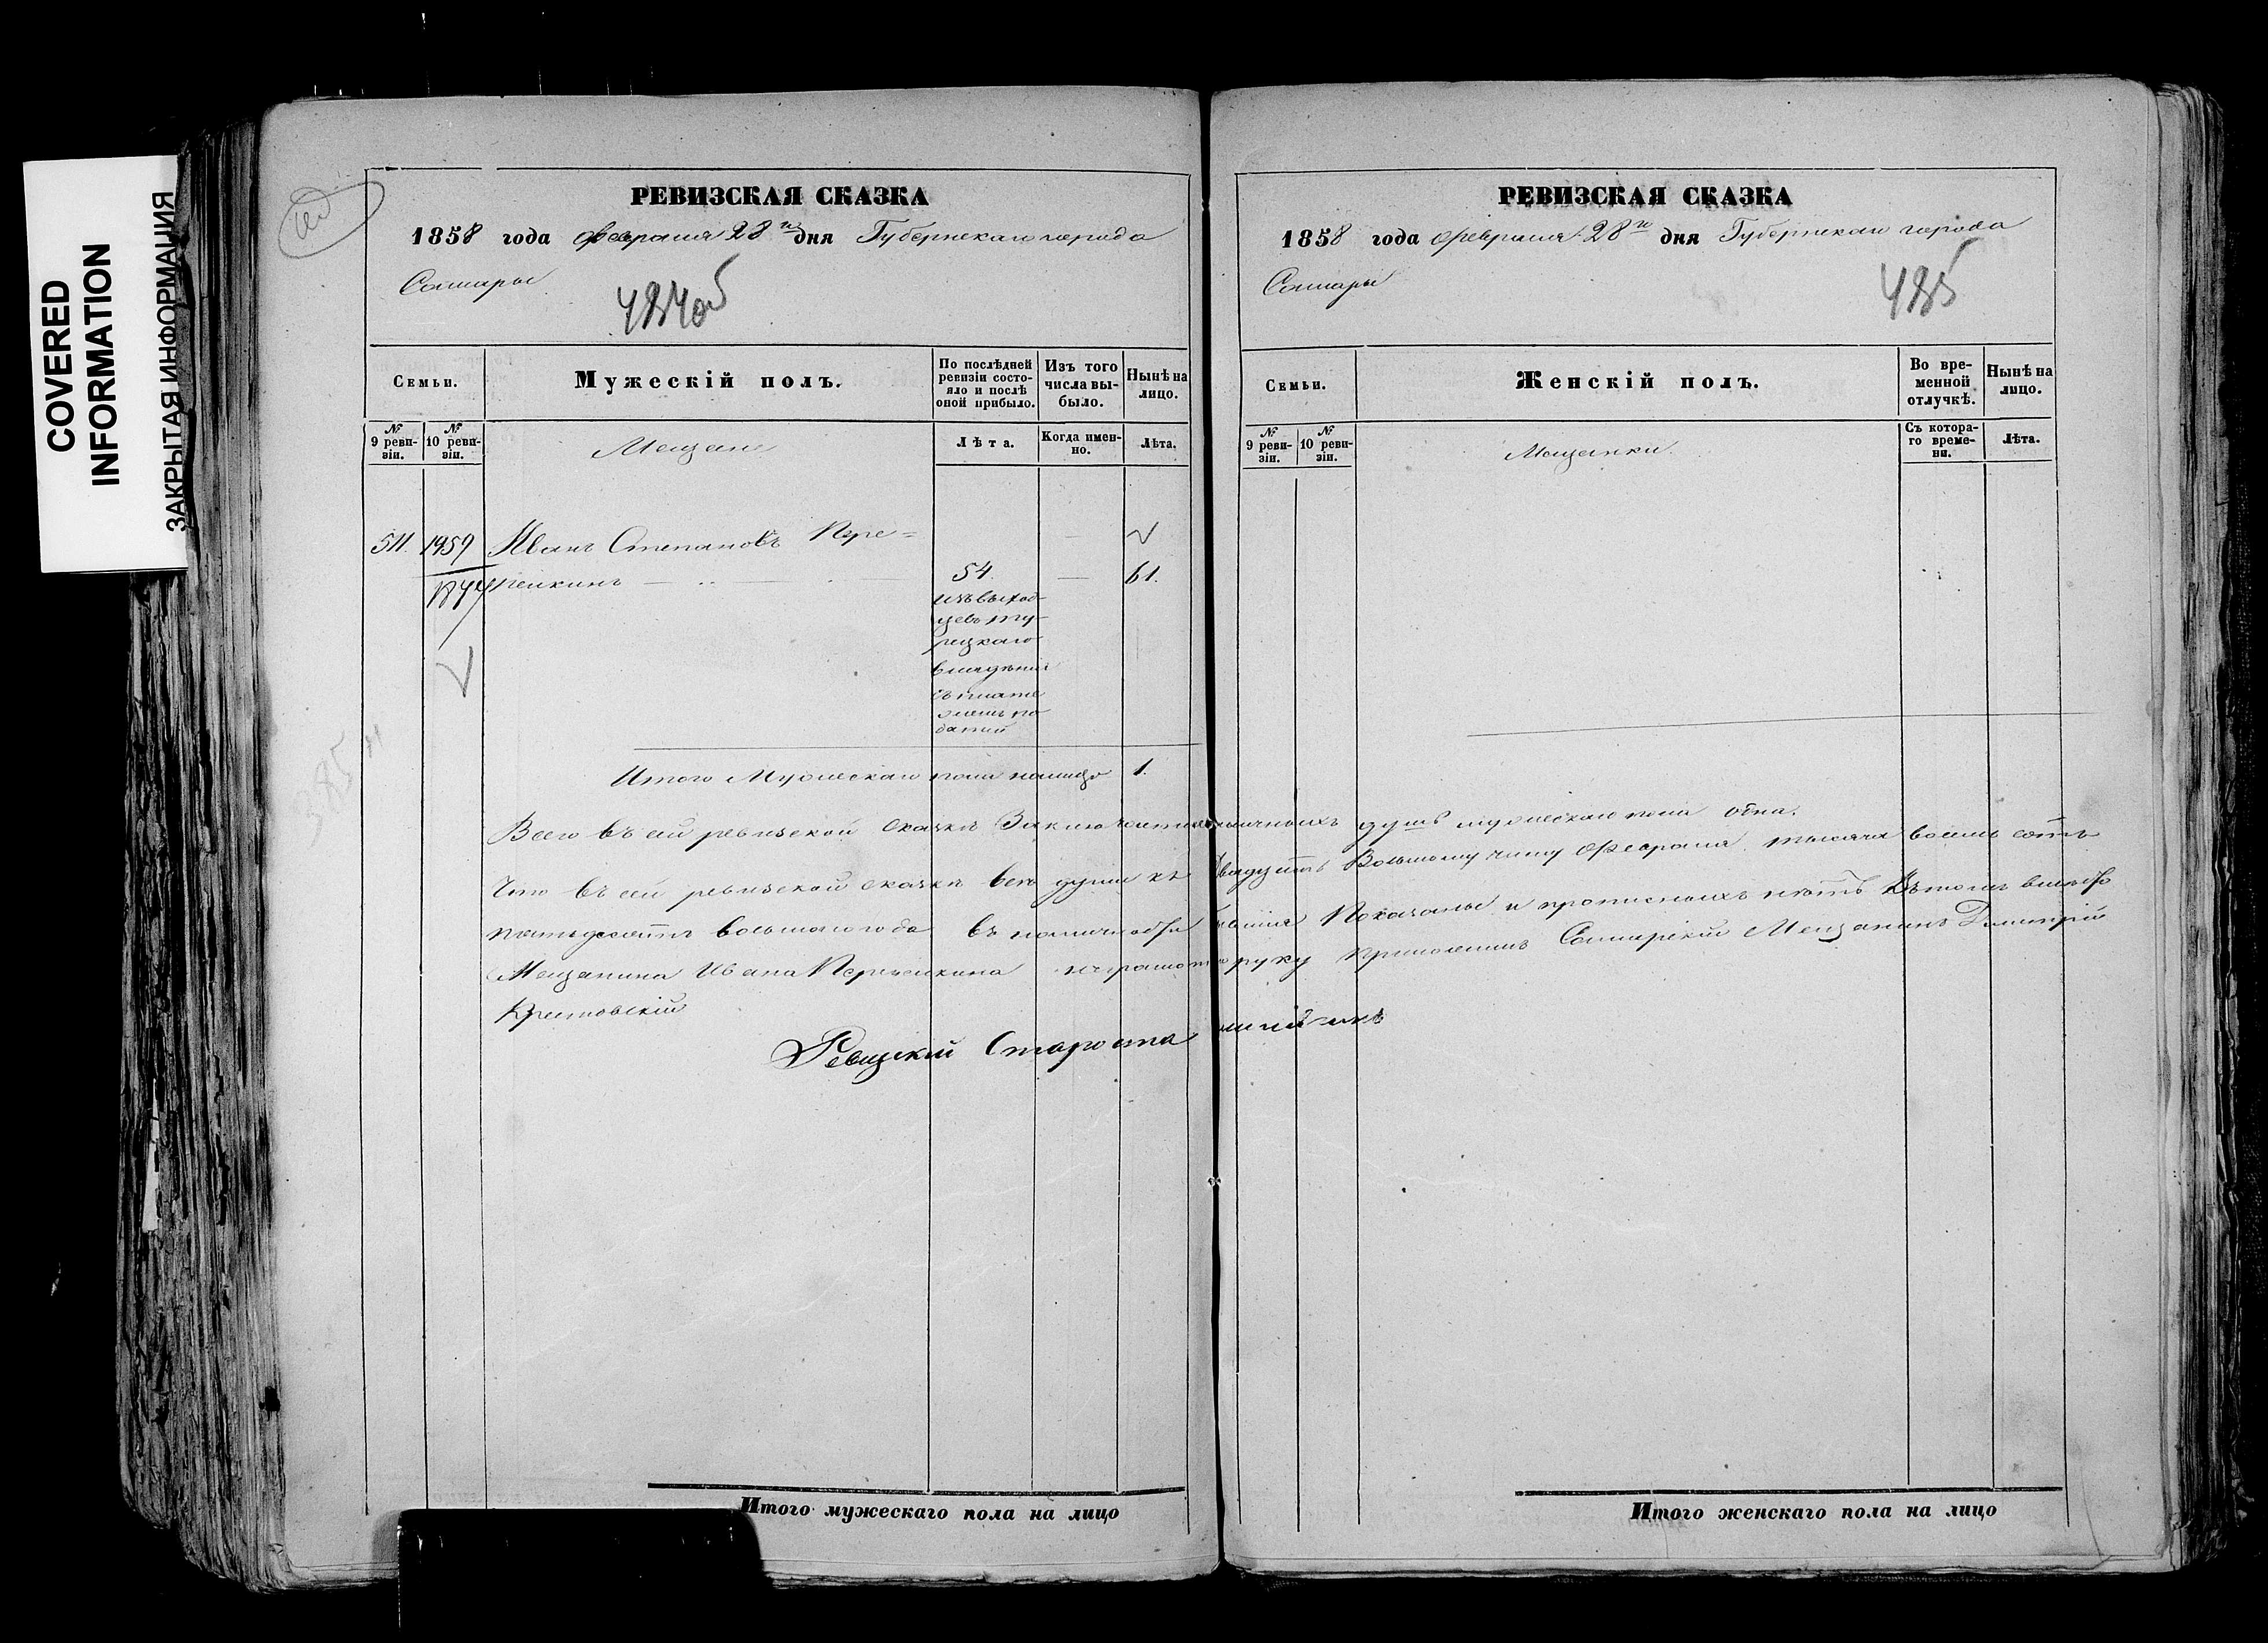 COVERED
INFORMATION
ЗАКРЫТАЯ ИНФОРМАЦИЯ
РЕВИЗСКАЯ СКАЗКА
1858 года Февраля 28 го дня Губернскаго города
Самары
484об
Семьи.
Мужескій полъ.
По послѣдней
ревизіи состо-
яло и послѣ
оной прибыло.
Изъ того
числа вы-
было.
Нынѣ на
лицо.
№
9 реви-
зіи.
№
10 реви-
зіи.
Мещане
Лѣта.
Когда имен-
но.
Лѣта.
511. 1959 Иванъ Степановъ Пере=
1844 пелкинъ — 54. — 61.
изъ выход-
цевъ ту-
рецкаго
владѣнія
съ плате
жемъ по
датей
Итого Мужескаго пола налицо 1.
Всего въ сей ревизской сказкѣ Заключается наличныхъ душъ мужескаго пола одна.
Что въ сей ревизской сказкѣ все души къ двадцать Восьмому числу Февраля тысяча восемь сотъ
пятьдесятъ восьмого года въ наличности бывшія Показаны и прописныхъ нѣтъ Въ томъ вмѣсто
Мещанина Ивана Перепелкина неграмотн руку приложилъ Самарскій Мещанинъ Дмитрій
Крестовскій
Ревизскій Староста
Итого мужескаго пола на лицо
РЕВИЗСКАЯ СКАЗКА
1858 года Февраля 28 го дня Губернскаго города
Самары
485
Семьи.
Женскій полъ.
Во вре-
менной
отлучкѣ.
Нынѣ на
лицо.
№
9 реви-
зіи.
№
10 реви-
зіи.
Мещанки.
Съ котора-
го време-
ни.
Лѣта.
Итого женскаго пола на лицо